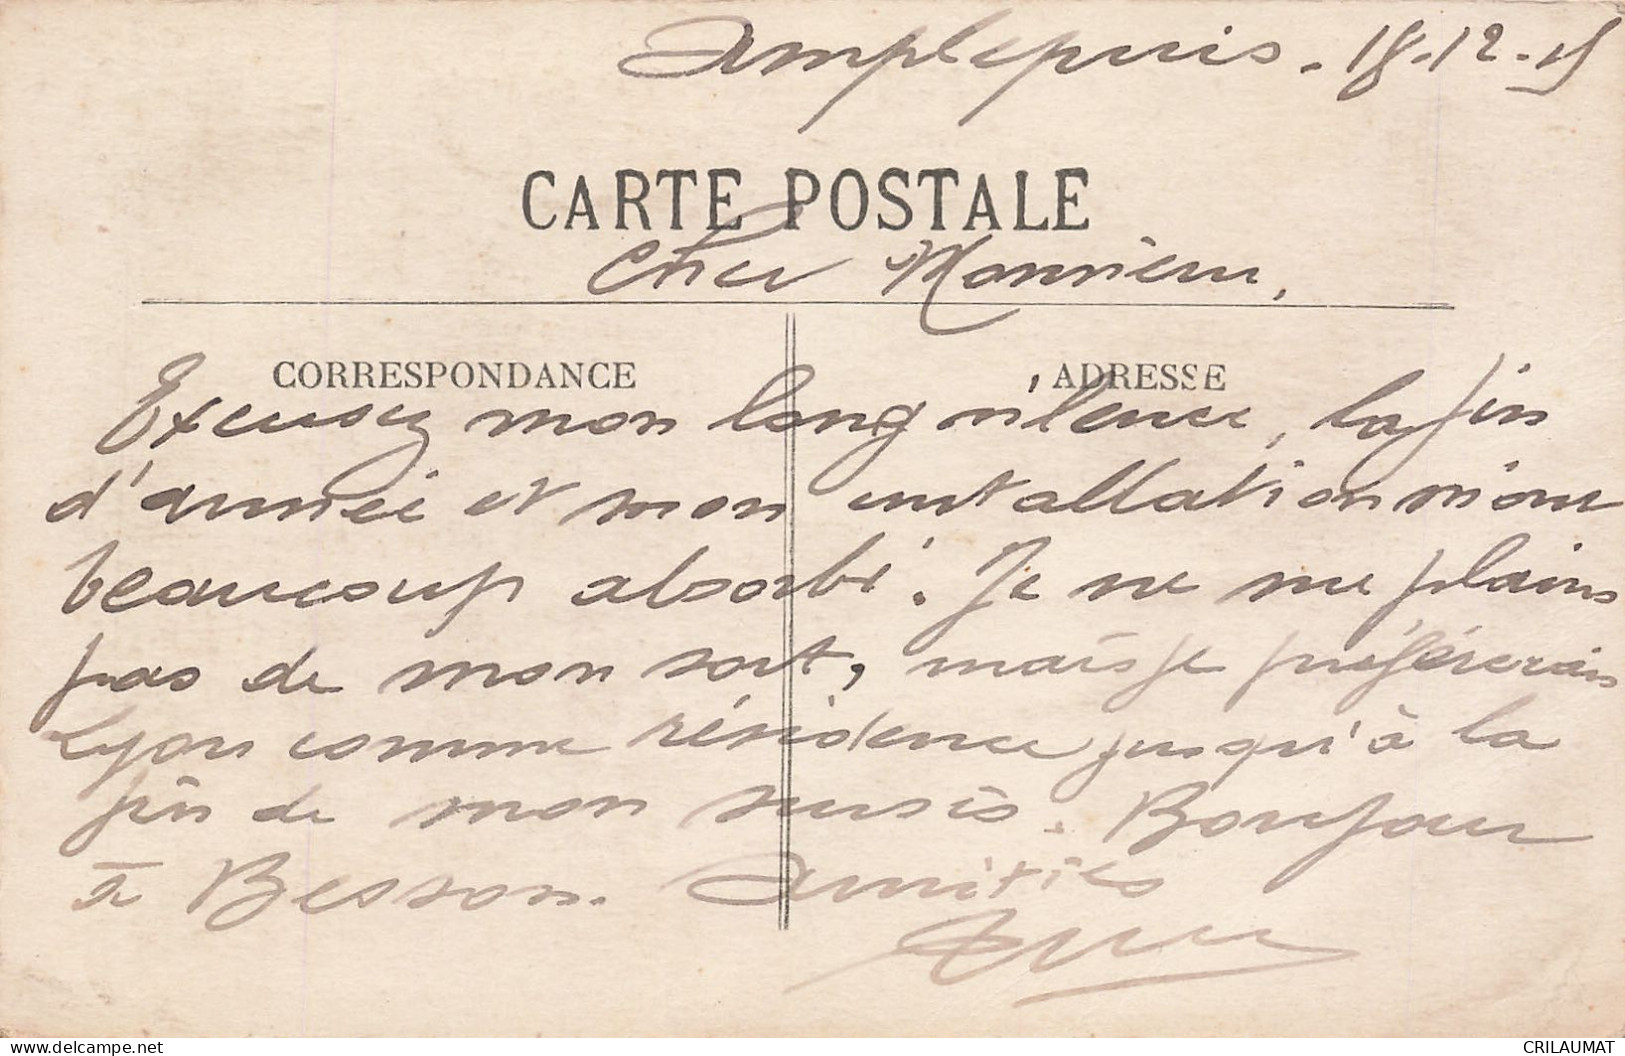 Amplepuis. 18-12-15
CARTE POSTALE
Cher Monsieur,
CORRESPONDANCE
ADRESSE
Excusez mon long silence, la fin
d'année et mon installation m'ont
beaucoup absorbé. Je ne me plains
pas de mon sort, mais je préférerais
Lyon comme résidence jusqu'à la
fin de mon sursis. Bonjour
à Besson. Amitiés
CRILAUMAT